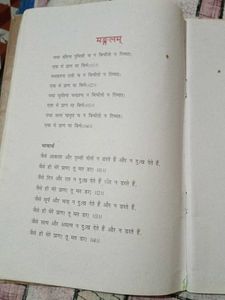 मङ्गलम्
यथा द्यौश्च पृथिवी च न बिभीतो न रिष्यतः।
एवा मे प्राण मा बिभेः॥1॥
च न बिभीतो न रिष्यतः।
एवा मे प्राण मा बिभेः॥2॥
यथा सूर्यश्च चन्द्रश्च न बिभीतो न रिष्यतः।
एवा मे प्राण मा बिभेः॥3॥
यथा च न बिभीतो न रिष्यतः।
एवा मे प्राण मा बिभेः॥4॥
भावार्थ
जैसे आकाश और पृथ्वी दोनों न डरते हैं और न दुःख देते हैं,
वैसे ही मेरे प्राण! तू मत डर। ॥1॥
जैसे दिन और रात न दुःख देते हैं और न डरते हैं,
वैसे ही मेरे प्राण! तू मत डर। ॥2॥
जैसे सूर्य और चन्द्र न दुःख देते हैं और न डरते हैं,
वैसे ही मेरे प्राण! तू मत डर। ॥3॥
जैसे सत्य और असत्य न दुःख देते हैं और न डरते हैं,
वैसे ही मेरे प्राण! तू मत डर। ॥4॥